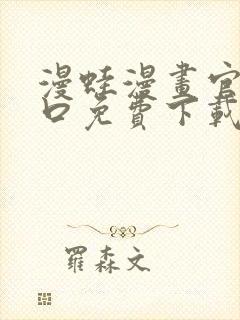 漫蛙漫畫官
口免費下載
羅森文